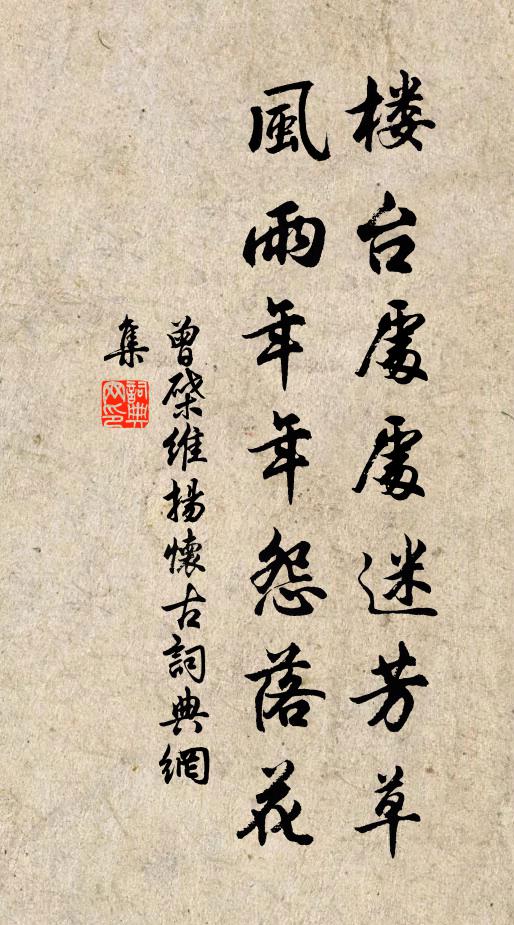 楼台處處迷芳草
風雨年年怨落花
曾棨維揚懷古詞典網
集
詞典
网印